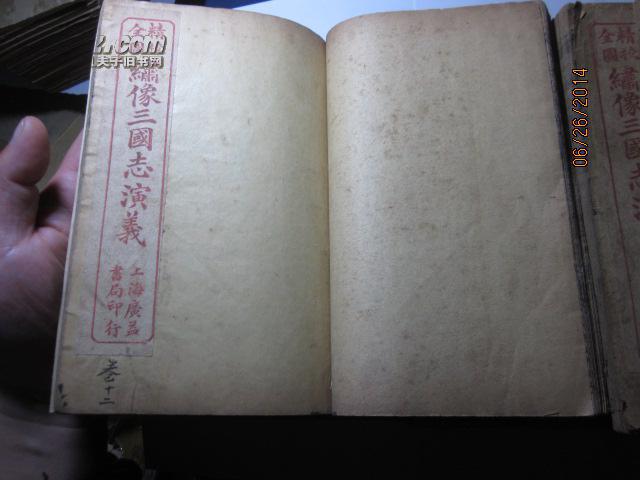 精
全
繡像三國志演義
上海廣益
書局印行
卷十二
z.com
夫子旧书网
精校
全圖
繡像三國志演
06/26/2014